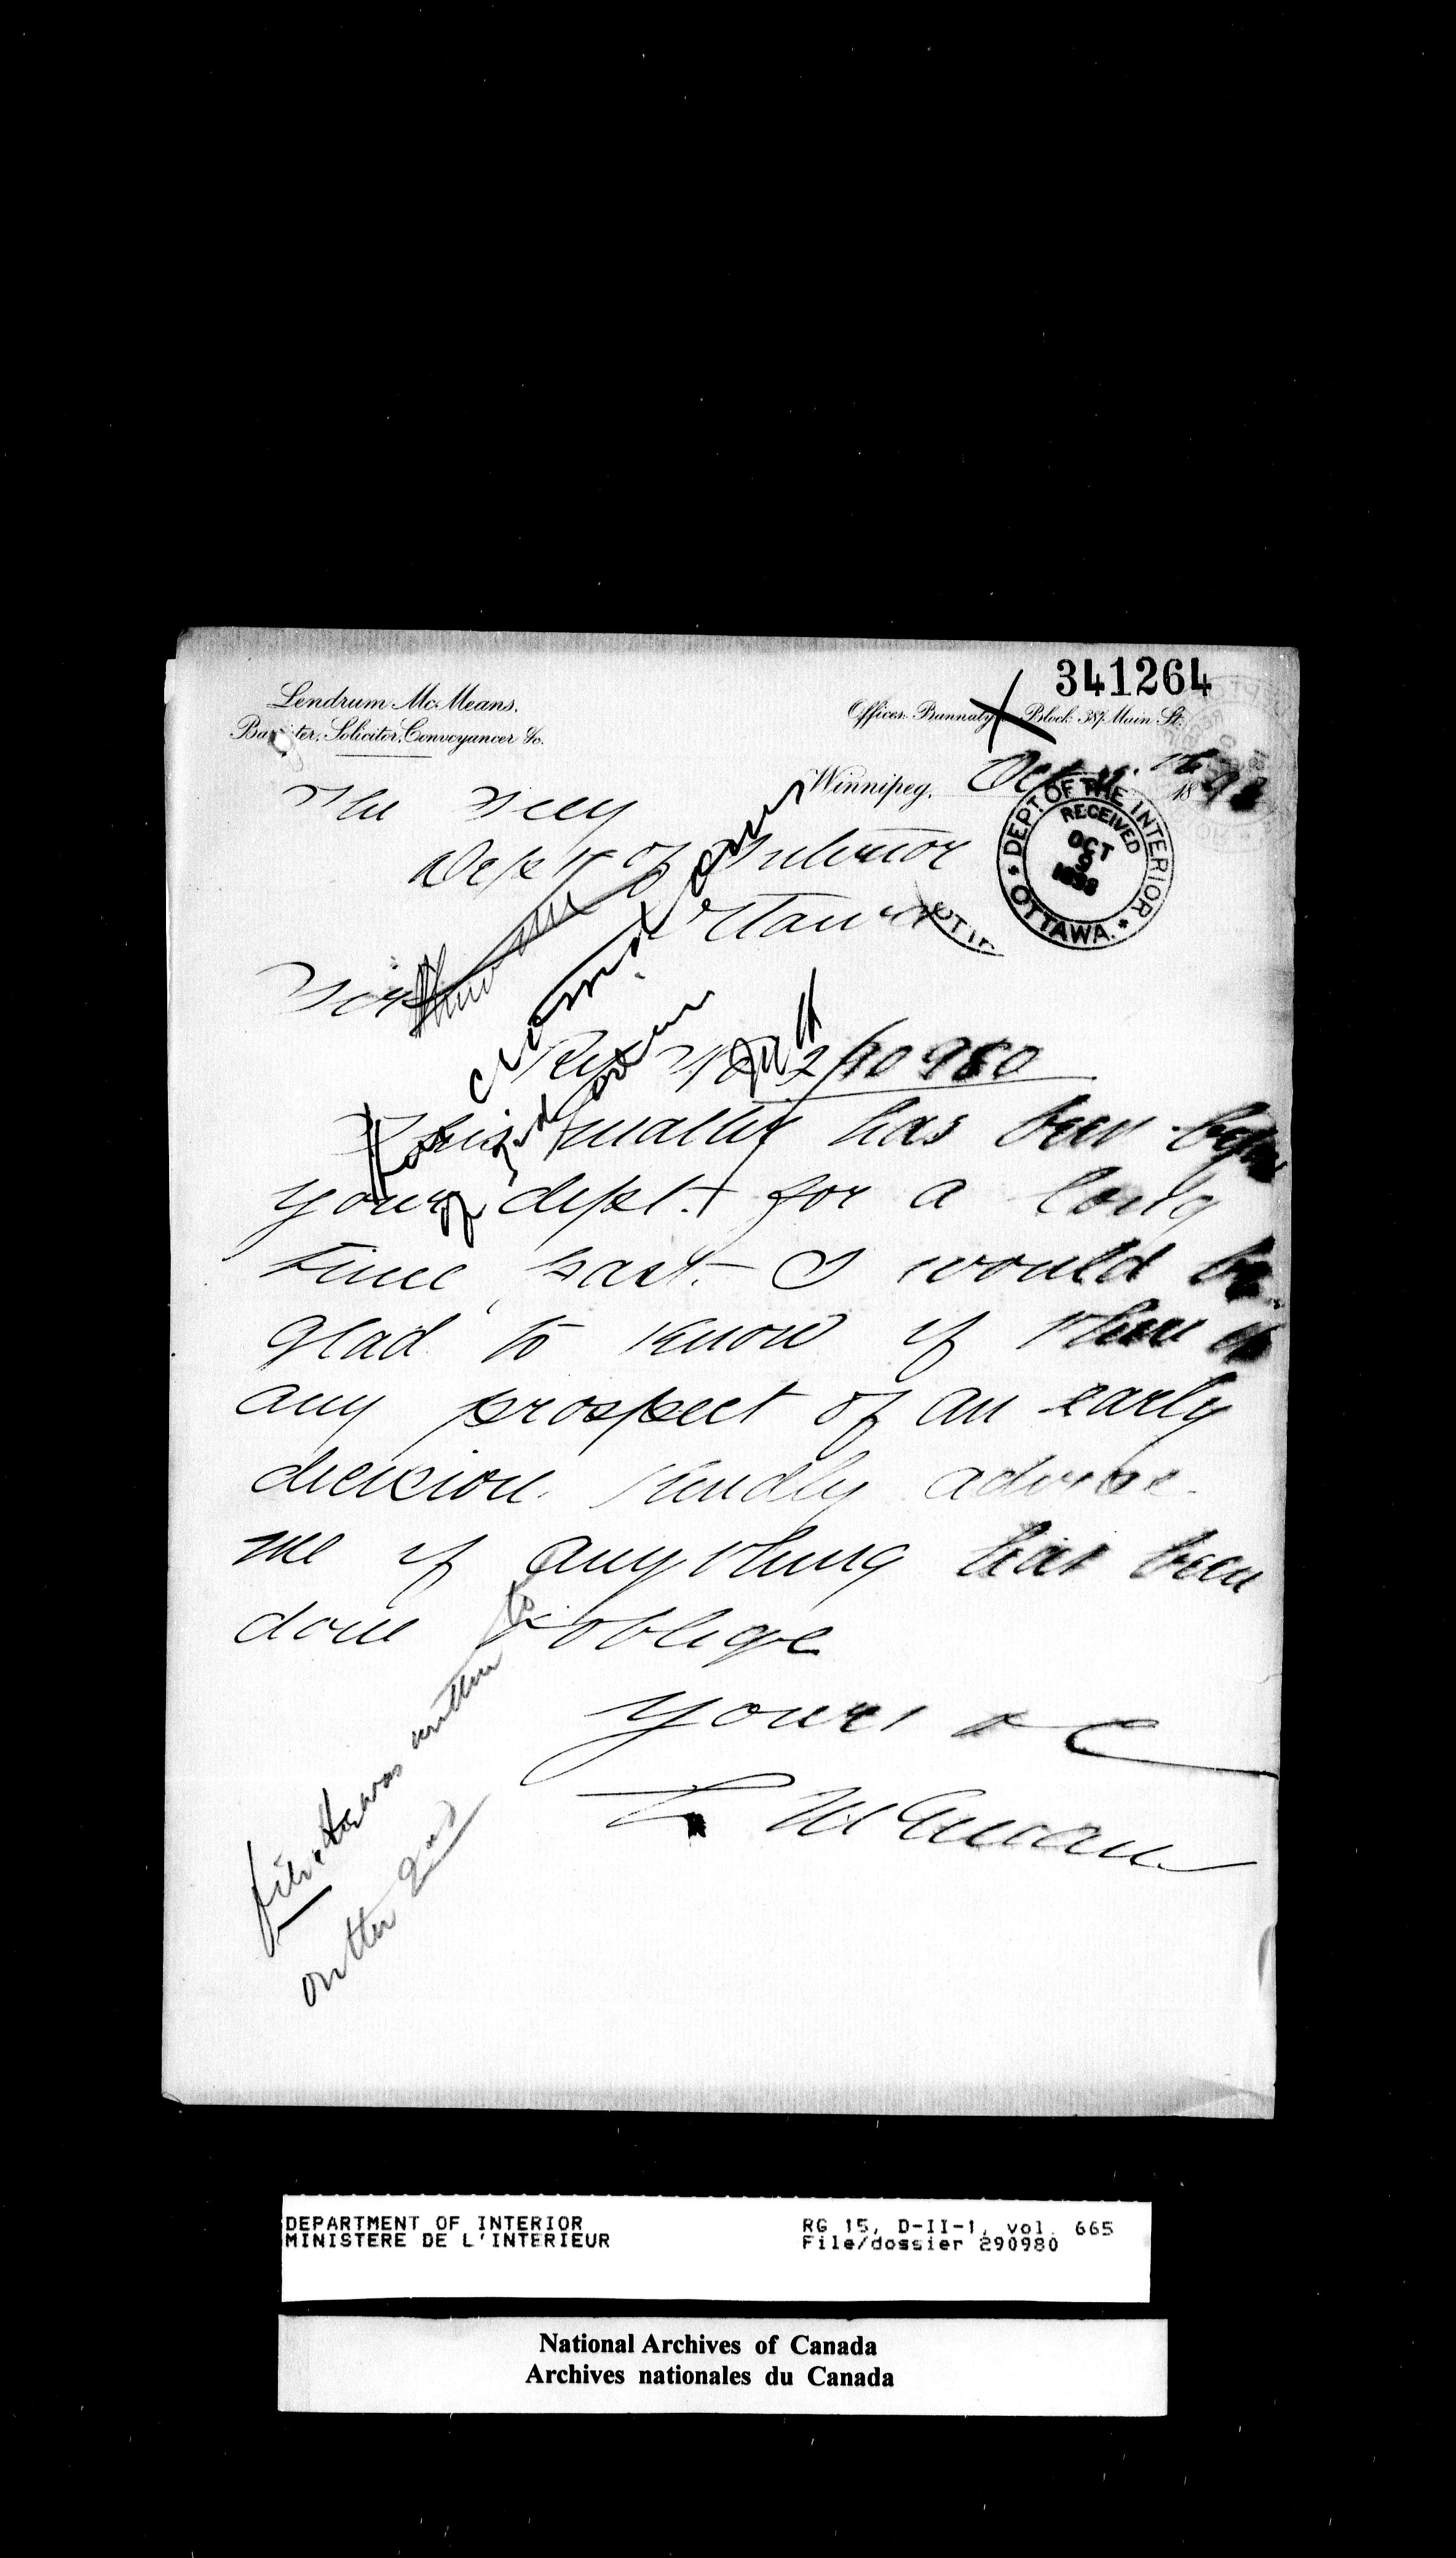 341264
Lendrum Mc.Means.
Barrister, Solicitor, Conveyancer &c.
Offices Bannatyne Block 387 Main St.
Winnipeg, Oct 18
DEPT. OF THE INTERIOR
RECEIVED
OCT
9
OTTAWA.
The Secy
Dept of Interior
Ottawa
Sir
Re No 290980
This matter has been before
your dept. for a long
time past. I would be
glad to know if there is
any prospect of an early
decision. Kindly advise
me if anything has been
done & oblige
Yours &c
L McMeans
file. He was written to
on the
DEPARTMENT OF INTERIOR
MINISTERE DE L'INTERIEUR
RG 15, D-II-1, vol. 665
File/dossier 290980
National Archives of Canada
Archives nationales du Canada